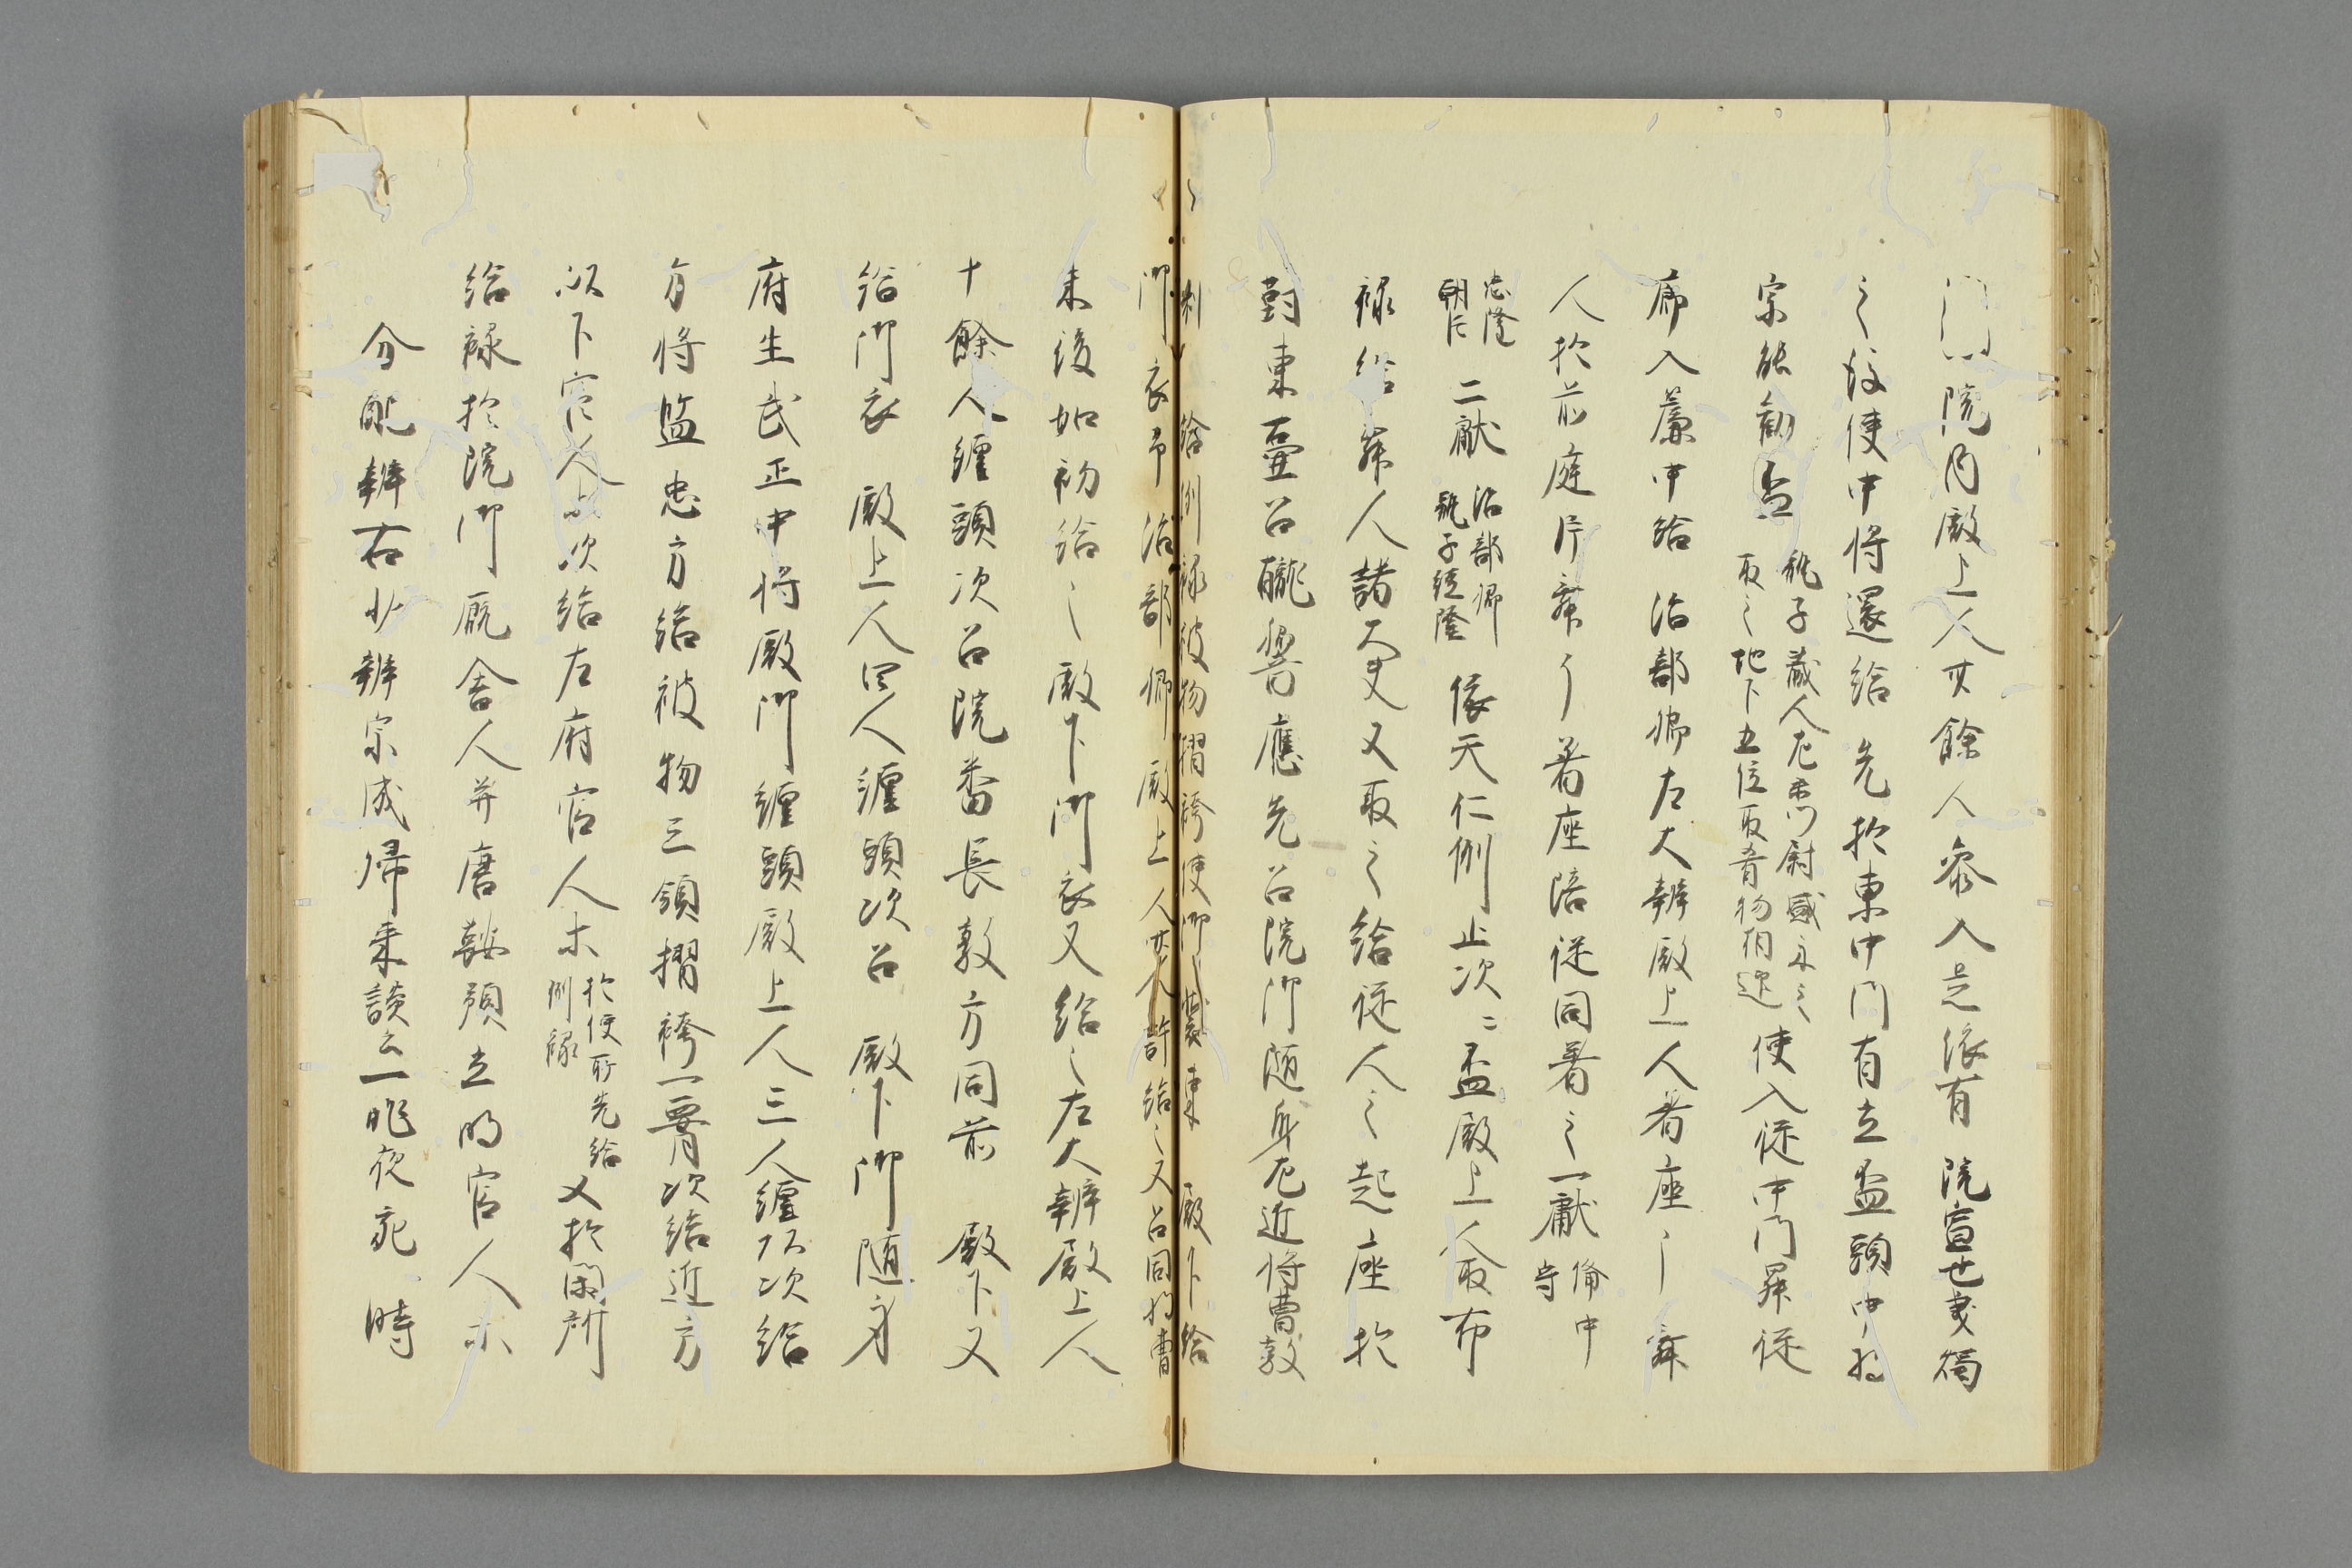 院内殿上人廿餘人參入是依有 院宣也史獨
之後使中將還給 先於東中門有立盃頭中將
宗能勸盃 瓶子藏人左衛門尉盛
取之地下五位取肴物相逆 使入從中門昇從
廊入簾中給 治部卿左大辨殿上人着座 舞
人於前庭片舞了着座陪從同着之一獻 備中
守
忠隆
朝臣 二獻 治部卿
瓶子經隆 依天仁例止次々盃殿上人取布
祿給舞人諸大夫又取之給從人之起座於
對東壷召 應先召院御随身左近將曹敦
利 給例祿被物摺袴使御裝束 殿下給
御衣 治部卿殿上人 許給之又召同將曹
来後如初給之 殿下御衣又給之左大辨殿上人
十餘人纏頭次召院番長敦方同前 殿下又
給御衣 殿上人四人纏頭次召 殿下御随身
府生武正中將殿御纏頭殿上人三人纏頭次給
方將監忠方給被物三領摺袴一腰次給近方
以下官人 次給左府官人ホ 於使所先給
例祿 又於閑所
給祿於院御厩舎人并唐鞍預立明官人ホ
分配辨右少辨宗成帰来談云一昨夜 時